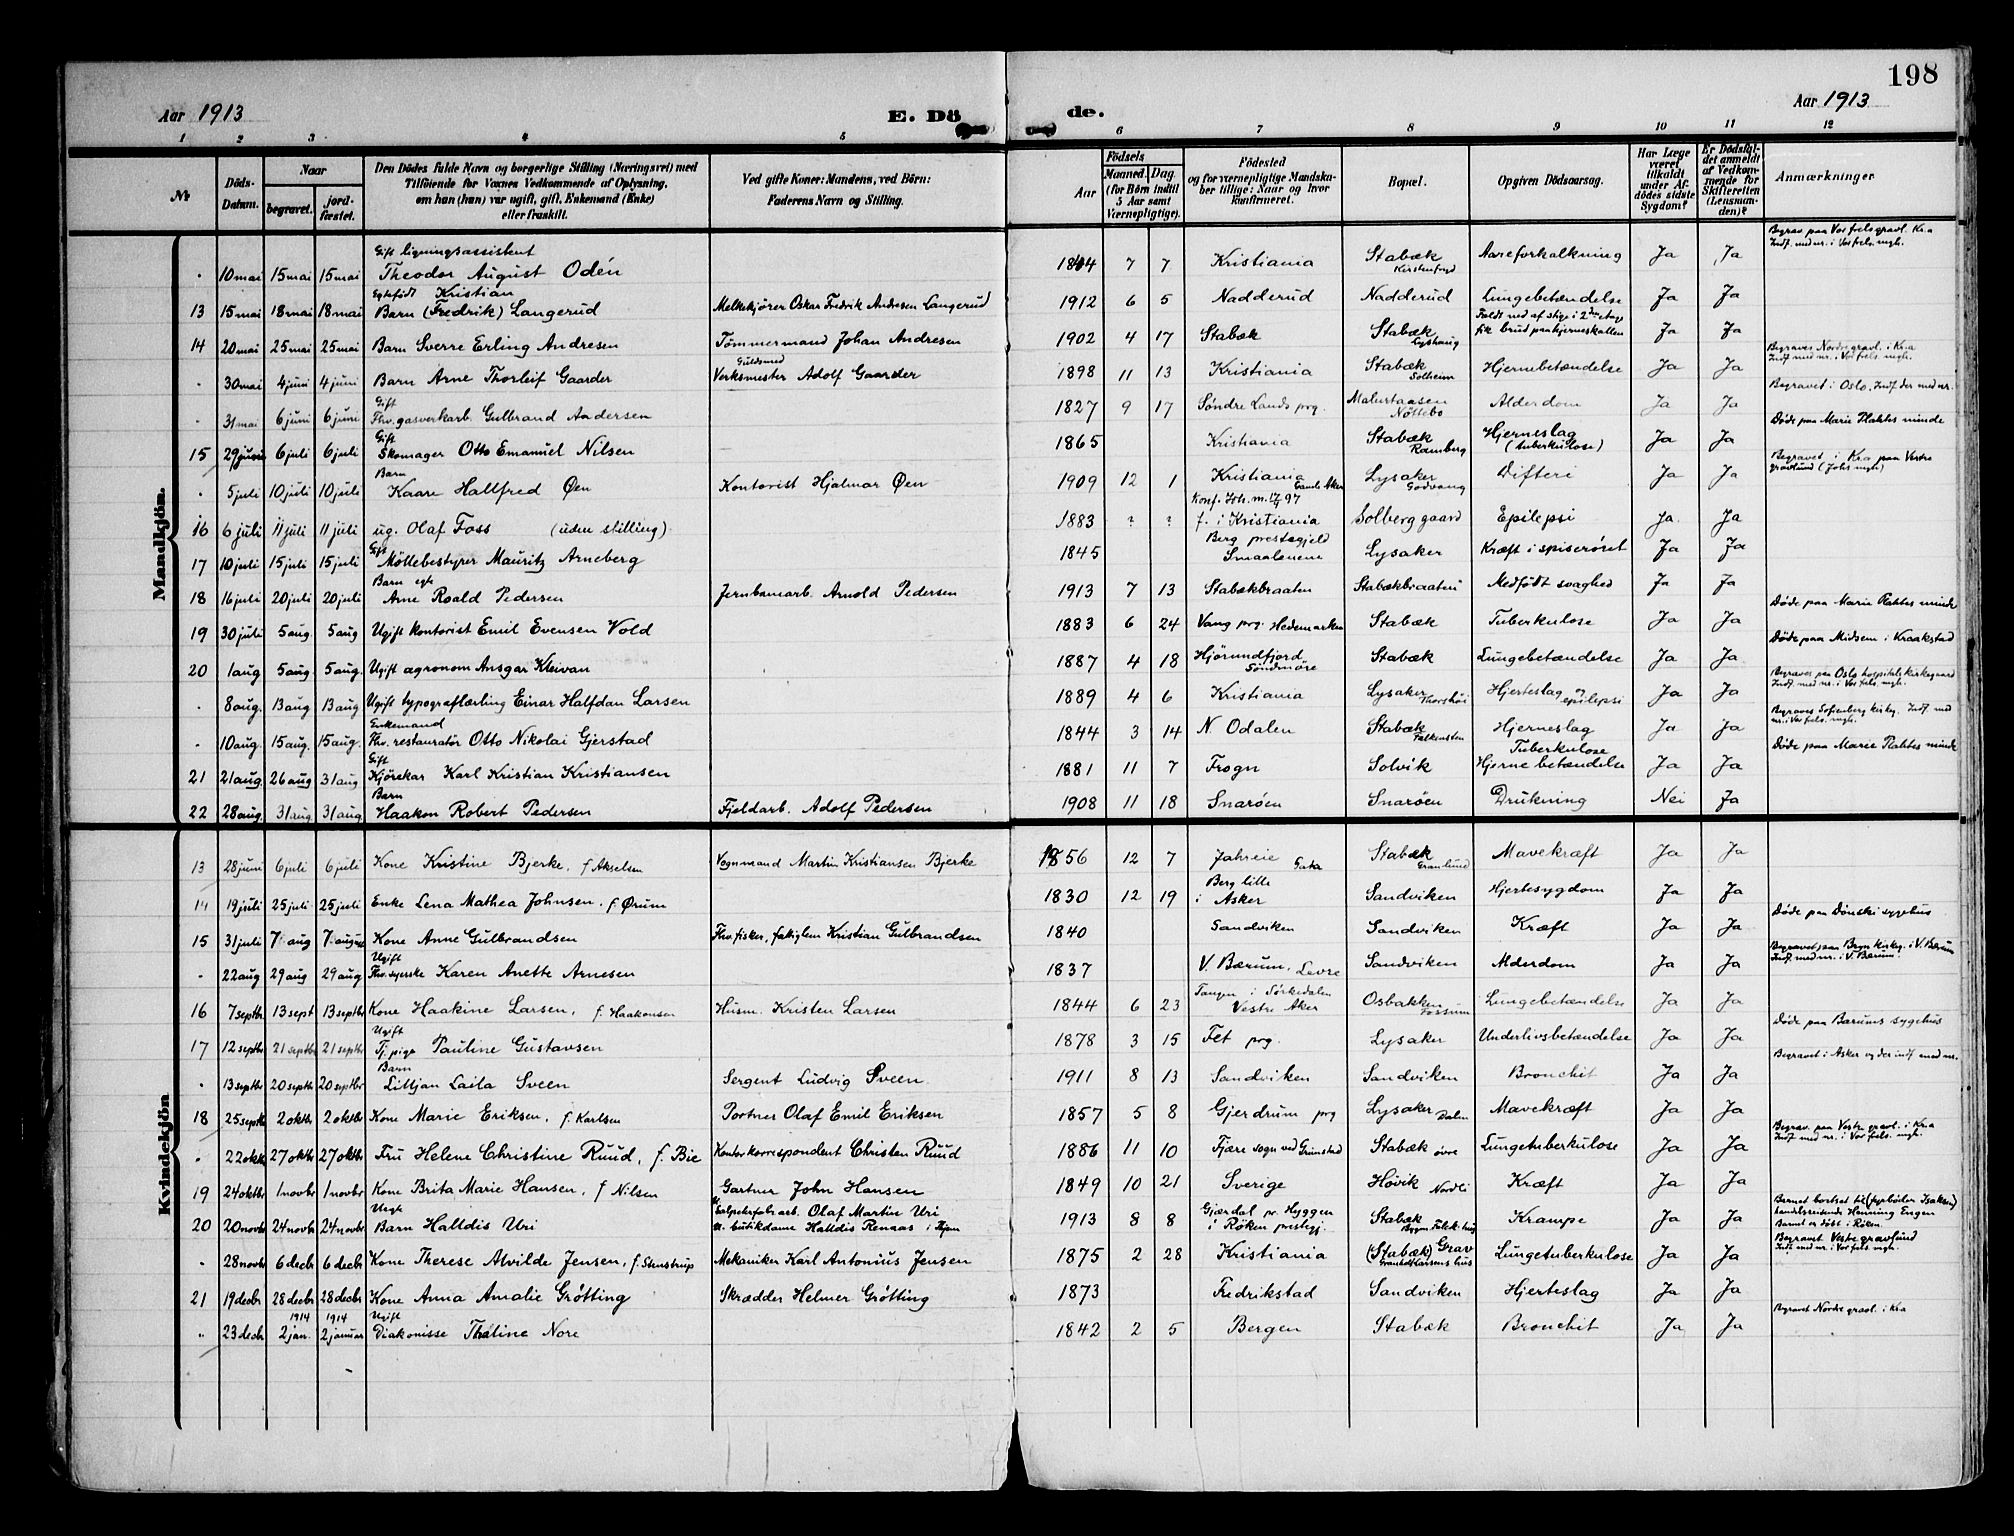 198
Aar 1913
E. Dö
de.
Aar 1913
1 2 3 4 5 6 7 8 9 10 11 12
№
Döds-Datum.
Naar
begravet.
jordfæstet.
Den Dödes fulde Navn og borgerlige Stilling (Næringsvei) med
Tilföiende for Voxnes Vedkommende af Oplysning,
om han (hun) var ugift, gift, Enkemand (Enke)
eller fraskilt.
Ved gifte Koner: Mandens, ved Börn:
Faderens Navn og Stilling.
Aar
Födsels
Maaned. Dag
(for Börn indtil
5 Aar samt
Værnepligtige).
Födested
og for værnepligtige Mandska-
ber tillige: Naar og hvor
konfirmeret.
Bopæl.
Opgiven Dödsaarsag.
Har Læge
været
tilkaldt
under Af-
dödes sidste
Sygdom?
Er Dödsfal-
det anmeldt
af Vedkom-
mende for
Skifteretten
(Lensman-
den)?
Anmærkninger
Mandkjön.
Gift ligningsassistent Begrav. paa Vor frels. gravl. Kra
Indf. med nr. i Vor frels. mgh.
" 10 mai 15 mai 15 mai Theodor August Odén 1844 7 7 Kristiania Stabæk Aareforkalkning Ja Ja
Egtefødt Kristian
13 15 mai 18 mai 18 mai Barn (Fredrik) Langerud Melkekjører Oskar Fredrik Andresen Langerud 1912 6 5 Nadderud Nadderud Lungebetændelse Ja Ja
Faldt ned af stige i 2den etage
14 20 mai 25 mai 25 mai Barn Sverre Erling Andresen Tömmermand Johan Andresen 1902 4 17 Stabæk Stabæk Lyshaug fik brud paa hjerneskallen Ja Ja
Guldsmed Begraves Nordre gravl. i Kra
Indf. med nr. i Vor frels. mgh.
" 30 mai 4 juni 4 juni Barn Arne Thorleif Gaarder Verksmester Adolf Gaarder 1898 11 13 Kristiania Stabæk Solheim Hjernebetændelse Ja Ja
Gift Begravet i Oslo. Indf. der med nr.
" 31 mai 6 juni 6 juni Fhv. gasverkarb. Gulbrand Andersen 1827 9 17 Søndre Lands prg. Nøttebo Alderdom Ja Ja
Gift Døde paa Marie Plahtes minde
15 29 juni 6 juli 6 juli Skomager Otto Emanuel Nilsen 1865 Kristiania Stabæk Ramberg Hjerneslag (tuberkulose) Ja Ja
Barn Begravet i Kra paa Vestre
gravlund (Johs mgh)
" 5 juli 10 juli 10 juli Kaare Hallfred Øen Kontorist Hjalmar Øen 1909 12 1 Kristiania Gamle Aker Lysaker Godvang Difteri Ja Ja
Konf. Joh. m. 17/4 97
16 6 juli 11 juli 11 juli ug. Olaf Foss (uden stilling) 1883 ? ? f. i Kristiania Solberg gaard Epilepsi Ja Ja
Gift Berg prestegjeld
17 10 juli 15 juli 15 juli Möllebestyrer Mauritz Arneberg 1845 Smaalenene Lysaker Kræft i spiserøret Ja Ja
Barn egte
18 16 juli 20 juli 20 juli Arne Roald Pedersen Jernbanearb. Arnold Pedersen 1913 7 13 Stabækbraaten Stabækbraaten Medfödt svaghed Ja Ja
Døde paa Marie Plahtes minde
19 30 juli 5 aug. 5 aug Ugift kontorist Emil Evensen Vold 1883 6 24 Vang prg. Hedemarken Stabæk Tuberkulose Ja Ja
Døde paa Midsem i Kraakstad
20 1 aug 5 aug. 5 aug. Ugift agronom Ansgar Kleivan 1887 4 18 Hjörundfjord Söndmöre Stabæk Lungebetændelse Ja Ja
Begraves paa Oslo hospitals kirkegaard
Indf. med nr. i Vor frels. mgh.
" 8 aug. 13 aug 13 aug Ugift typograflærling Einar Halfdan Larsen 1889 4 6 Kristiania Lysaker Thorshöi Hjerteslag og epilepsi Ja Ja
Enkemand Begraves Sofienberg kirkg. Indf. med
nr. i Vor frels. mgh.
" 10 aug. 15 aug. 15 aug. Fhv. restauratör Otto Nikolai Gjerstad 1844 3 14 N. Odalen Stabæk Falkensten Hjerneslag Ja Ja
Gift Tuberkulose Døde paa Marie Plahtes minde
21 21 aug. 26 aug 31 aug Kjörekar Karl Kristian Kristiansen 1881 11 7 Frogn Solvik Hjernebetændelse Ja Ja
Barn
22 28 aug. 31 aug 31 aug Haakon Robert Pedersen Fjeldarb. Adolf Pedersen 1908 11 18 Snaröen Snaröen Drukning Nei Ja
Kvindekjön
13 28 juni 6 juli 6 juli Kone Kristine Bjerke, f. Akselsen Vognmand Martin Kristiansen Bjerke 1856 12 7 Stabæk Granlund Mavekræft Ja Ja
Berg lille
14 19 juli 25 juli 25 juli Enke Lena Mathea Johnsen, f. Ørum 1830 12 19 i Asker Sandviken Hjertesygdom Ja Ja
Døde paa Dönski sygehus
15 31 juli 7 aug 7 august Kone Anne Gulbrandsen Fhv. fisker, fatiglem Kristian Gulbrandsen 1840 Sandviken Sandviken Kræft Ja Ja
Ugift Begravet paa Bryn kirkg. i V. Bærum
Indf. med nr. i V. Bærum.
" 22 aug 29 aug 29 aug Fhv. syerske Karen Anette Arnesen 1837 V. Bærum, Levre Sandviken Alderdom Ja Ja
Tangen i Sørkedalen
16 7 septbr 13 sept 13 septbr Kone Haakine Larsen, f. Haakonsen Husm. Kristen Larsen 1844 6 23 Vestre Aker Osbakken Fossum Lungebetændelse Ja Ja
Ugift Døde paa Bærums sygehus
17 12 septbr 21 septbr 21 septbr Tj. pige Pauline Gustavsen 1878 3 15 Fet prg. Lysaker Underlivsbetændelse Ja Ja
Barn Begravet i Asker og der indf. med nr.
" 13 septbr 20 septbr 20 septbr Lilljan Laila Sveen Sergent Ludvig Sveen. 1911 8 13 Sandviken Sandviken Bronchit Ja Ja
18 25 septbr 2 oktbr 2 oktbr Kone Marie Eriksen, f. Karlsen Portner Olaf Emil Eriksen 1857 5 8 Gjerdrum prg Lysaker Dalen Mavekræft Ja Ja
Begrav. paa Vestre gravl. i Kra
Indf. med nr. i Vor frels. mgh.
" 22 oktb 27 oktbr 27 oktbr Fru Helene Christine Ruud, f. Bie Kontorkorrespondent Christen Ruud 1886 11 10 Fjære sogn ved Grimstad Stabæk øvre Lungetuberkulose Ja Ja
19 24 oktbr 1 novbr 1 novbr Kone Brita Marie Hansen, f. Nilsen Gartner John Hansen 1849 10 21 Sverige Hövik Nordli Kræft Ja Ja
Uegte Olaf Martin Uri Gjærdal pr. Hyggen Barnet bortsat til (fyrböder Isaksen)
handelsreisende Henning Engen
Barnet er döbt i Röken.
20 20 novbr 24 novbr 24 novbr Barn Halldis Uri u. butikdame Halldis Renaas i Byen 1913 8 8 i Röken prestegj. Stabæk Krampe Ja Ja
Begravet Vestre gravlund
Indf. med nr. i Vor frels. mgh.
" 28 novbr 6 decbr 6 decbr Kone Therese Alvilde Jensen, f. Stenstrup Mekaniker Karl Antonius Jensen 1875 2 28 Kristiania (Stabæk) Grav Lungetuberkulose Ja Ja
21 19 decbr 28 decbr 28 decbr Kone Anna Amalie Grötting Skrædder Helmer Grötting 1873 Fredrikstad Sandviken Hjerteslag Ja Ja
1914 1914 Ugift Begravet Nordre gravl. i Kra
" 23 decb. 2 jan. 2 januar Diakonisse Thaline Nore 1842 2 5 Bergen Stabæk Bronchit Ja Ja